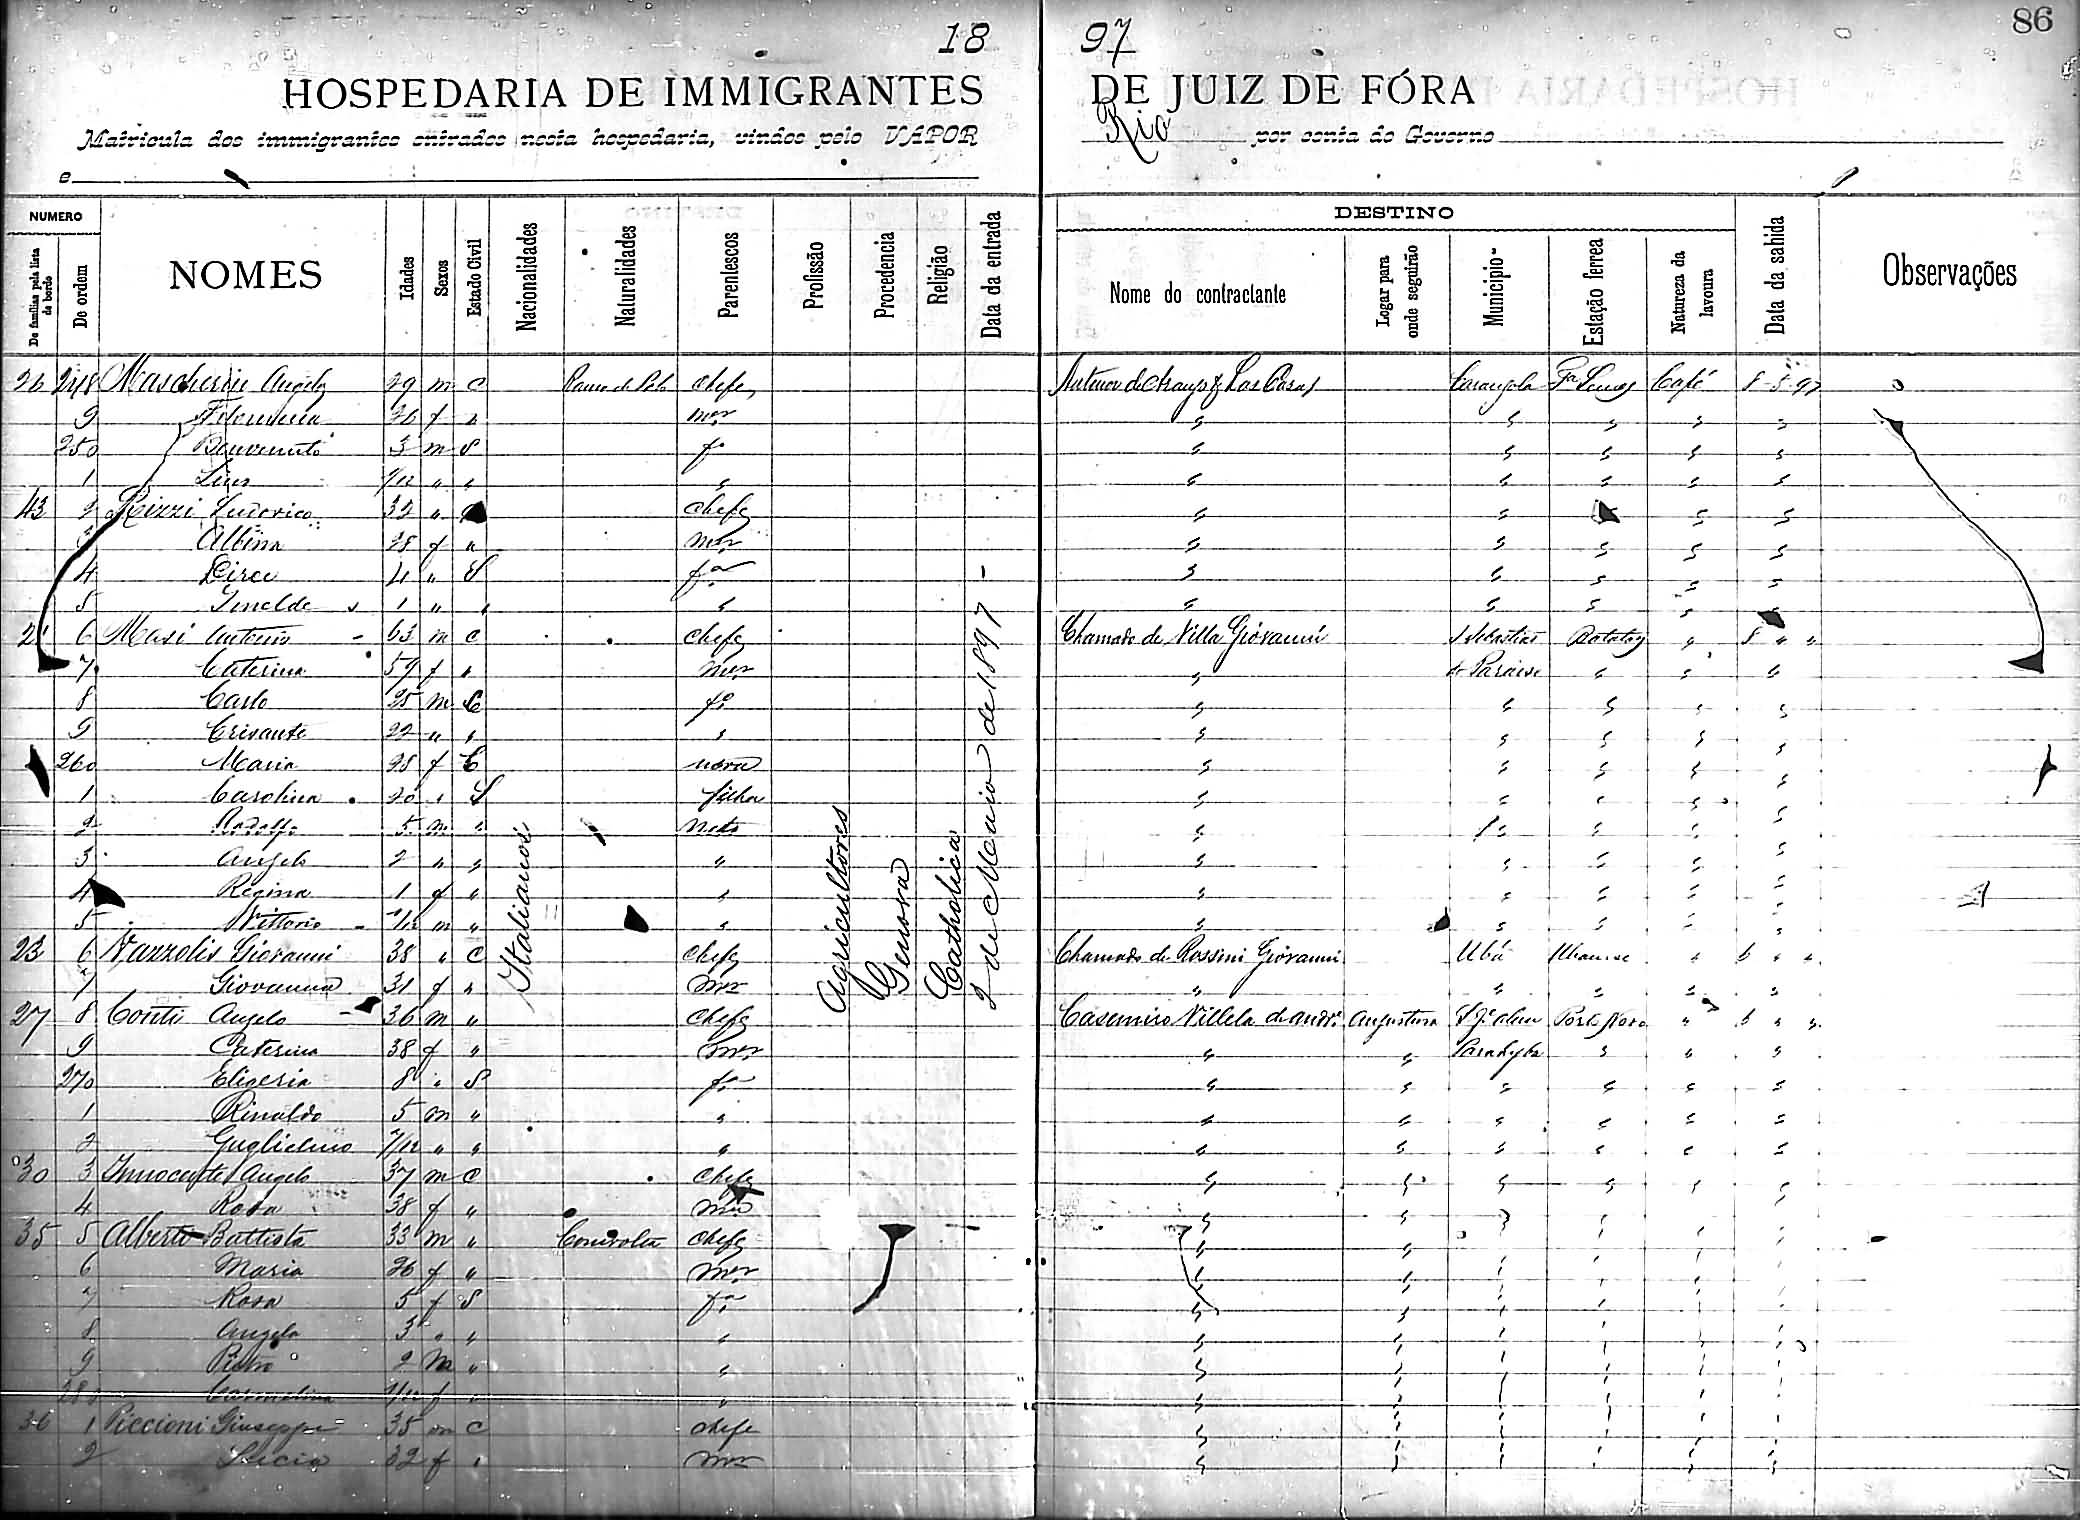 86
18 97
HOSPEDARIA DE IMMIGRANTES DE JUIZ DE FÓRA
Matricula dos immigrantes entrados nesta hospedaria, vindos pelo VAPOR Rio por conta do Governo
e
NUMERO DESTINO
De familias pela lista de bordo De ordem NOMES Idades Sexos Estado Civil Nacionalidades Naturalidades Parentescos Profissão Procedencia Religião Data da entrada Nome do contractante Logar para onde seguirão Municipio Estação ferrea Natureza da lavoura Data da sahida Observações
Italianos Agricultores Genova Catholica de Maio de 1897
26 248 Angelo 29 m c chefe Carangola Café 8-5-97
9 Filomena 26 f " mer " " " " "
250 Benvenuto 3 m S fo " " " " "
1 /12 " " " " " " " "
43 2 Rizzi Ludovico 32 " chefe " " " " "
3 Albina 28 f " mer " " " " "
4 Dirce 4 " S fa " " " " "
5 Imelde 1 " " " " " " " "
2 6 Masi Antonio 63 m c chefe Chamado de Villa Giovanni S Sebastião " 8 " "
7 Caterina 59 f " mer " do Paraiso " " "
8 Carlo 25 m fo " " " " "
9 Crisante 22 " " " " " " " "
260 Maria 28 f C nora " " " " "
1 Carolina 20 " S filha " " " " "
2 Rodolfo 5 m " neto " " " " "
3 Angelo 2 " " " " " " " "
4 Regina 1 f " " " " " " "
5 Vittorio /12 m " " " " " " "
23 6 Giovanni 38 " C chefe Chamado de Rossini Giovanni Ubá " 6 " "
7 Giovanna 31 f " mer " " " " "
27 8 Conti Angelo 36 m " chefe Casemiro Villela de Andre Angustura S J alem Porto Novo " 6 " "
9 Caterina 38 f " mer " " Parahyba " " "
270 Eligeria 8 " S fa " " " " " "
1 Rinaldo 5 m " " " " " " " "
2 Guglielmo 7/12 " " " " " " " " "
30 3 Innocente Angelo 37 m C chefe " " " " " "
4 Rosa 38 f " mer " " " " " "
35 5 Alberti Battista 33 m " chefe " " " " " "
6 Maria 26 f " mer " " " " " "
7 Rosa 5 f S fa " " " " " "
8 Angela 3 " " " " " " " " "
9 Pietro 2 m " " " " " " " "
280 Carmelina /12 f " " " " " " " "
36 1 Piccioni Giuseppe 35 m C chefe " " " " " "
2 32 f " mer " " " " " "